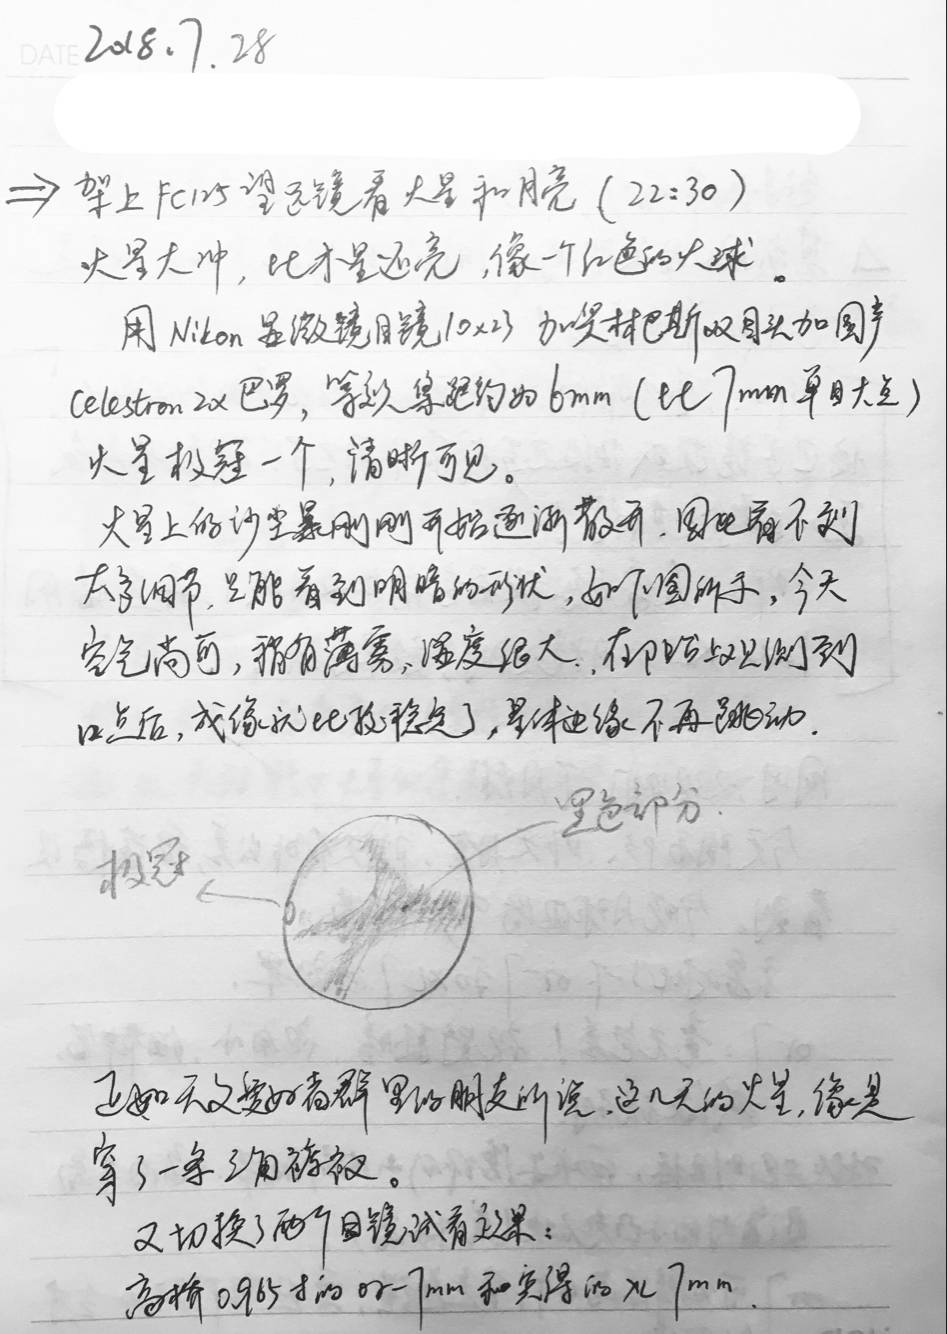 DATE 2018.7.28
⇒ 架上FC125望远镜看火星和月亮(22:30)
火星大冲,比木星还亮,像一个红色的火球。
用Nikon显微镜目镜10x23 加奥林巴斯双目头加国产
Celestron 2x 巴罗,等效焦距约为6mm(比7mm单目大点)
火星极冠一个,清晰可见。
火星上的沙尘暴刚刚开始逐渐散开.因此看不到
太多细节.只能看到明暗的形状,如下图所示,今天
空气尚可,稍有薄雾、湿度很大.,在阳台上观测到
12点后,成像就比较稳定了,星体边缘不再跳动.
黑色部分.
极冠
正如天文爱好者群里的朋友所说.这几天的火星,像是
穿了一条三角裤衩。
又切换了两个目镜试看效果:
高桥0.965寸的or-7mm和宾得的XL 7mm.